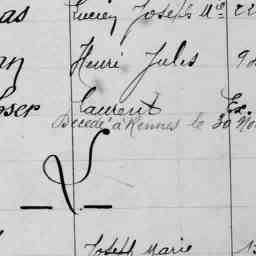 as Lucien Joseph Mle 22
an Henri Jules 9
ser Laurent Ex.
Décédé à Rennes le 30 No
Joseph Marie 1